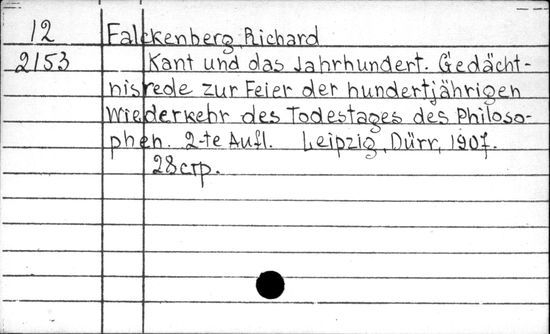 12 Falckenberg, Richard
2153 Kant und das Jahrhundert. Gedächt-
nisrede zur Feier der hundertjährigen
Wiederkehr des Todestages des Philoso-
phen. 2-te Aufl. Leipzig, Dürr, 1907.
28 стр.